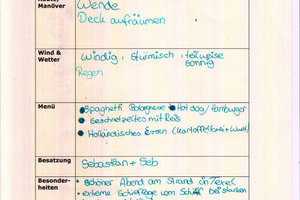 Manöver
Wende
Deck aufräumen
Wind &
Wetter
windig, stürmisch, teilweise
sonnig
Regen
Menü
Spaghetti Bolognese • Hot dog/Hamburger
• Geschnetzeltes mit Reis
• Holländisches Essen (Kartoffelbrei + Wurst)
Besatzung
Sebastian + Seb
Besonder-
heiten
• schöner Abend am Strand in Texel
• extreme Schieflage vom Schiff bei starken